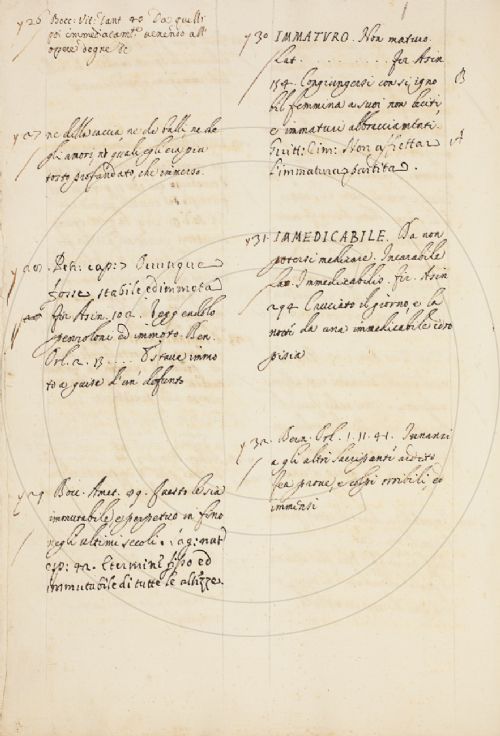 y 26 Bocc: Vit: Dant 40 Da quelli
poi immediatam.te venendo all'
opere degne &c
y 27 ne della caccia, ne de balli ne de
gli amori, ne' quali egli era piu
tosto profondato, che immerso.
y 28 Petr: cap: 7 Qualunque
fosse stabile ed immota
fir Asin. 102. Veggendolo
penzolone ed immoto. Ber.
Orl. 2. 13 .... Si stave immo
to a guisa d'un' defunto
y 29 Bocc. Amet. 49. questo le sia
immutabile, e perpetuo in fino
negli ultimi secoli.
cap: 42. E termine fisso ed
immutabile di tutte le altezze.
y 30 IMMATURO. Non maturo.
Lat. . . . . . . . . . fir Asin
154. Congiungersi con si igno
bil femmina a suoi non leciti,
e immaturi abbracciamenti.
Guitt: Rim: Non affretta
l'immatura partita.
y 31. IMMEDICABILE. Da non
potersi medicare. Incurabile
Lat. Immedicabilis. fir. Asin
294 Cruciato il giorno e la
notte da una immedicabile idro
pisia
y 32. Bern. Orl. 1. 11. 41. Innanzi
a gli altri Sacripante ardito
fea prove, e colpi orribili, ed
immensi